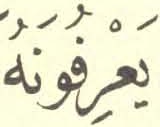 يَعْرِفُونَهُ